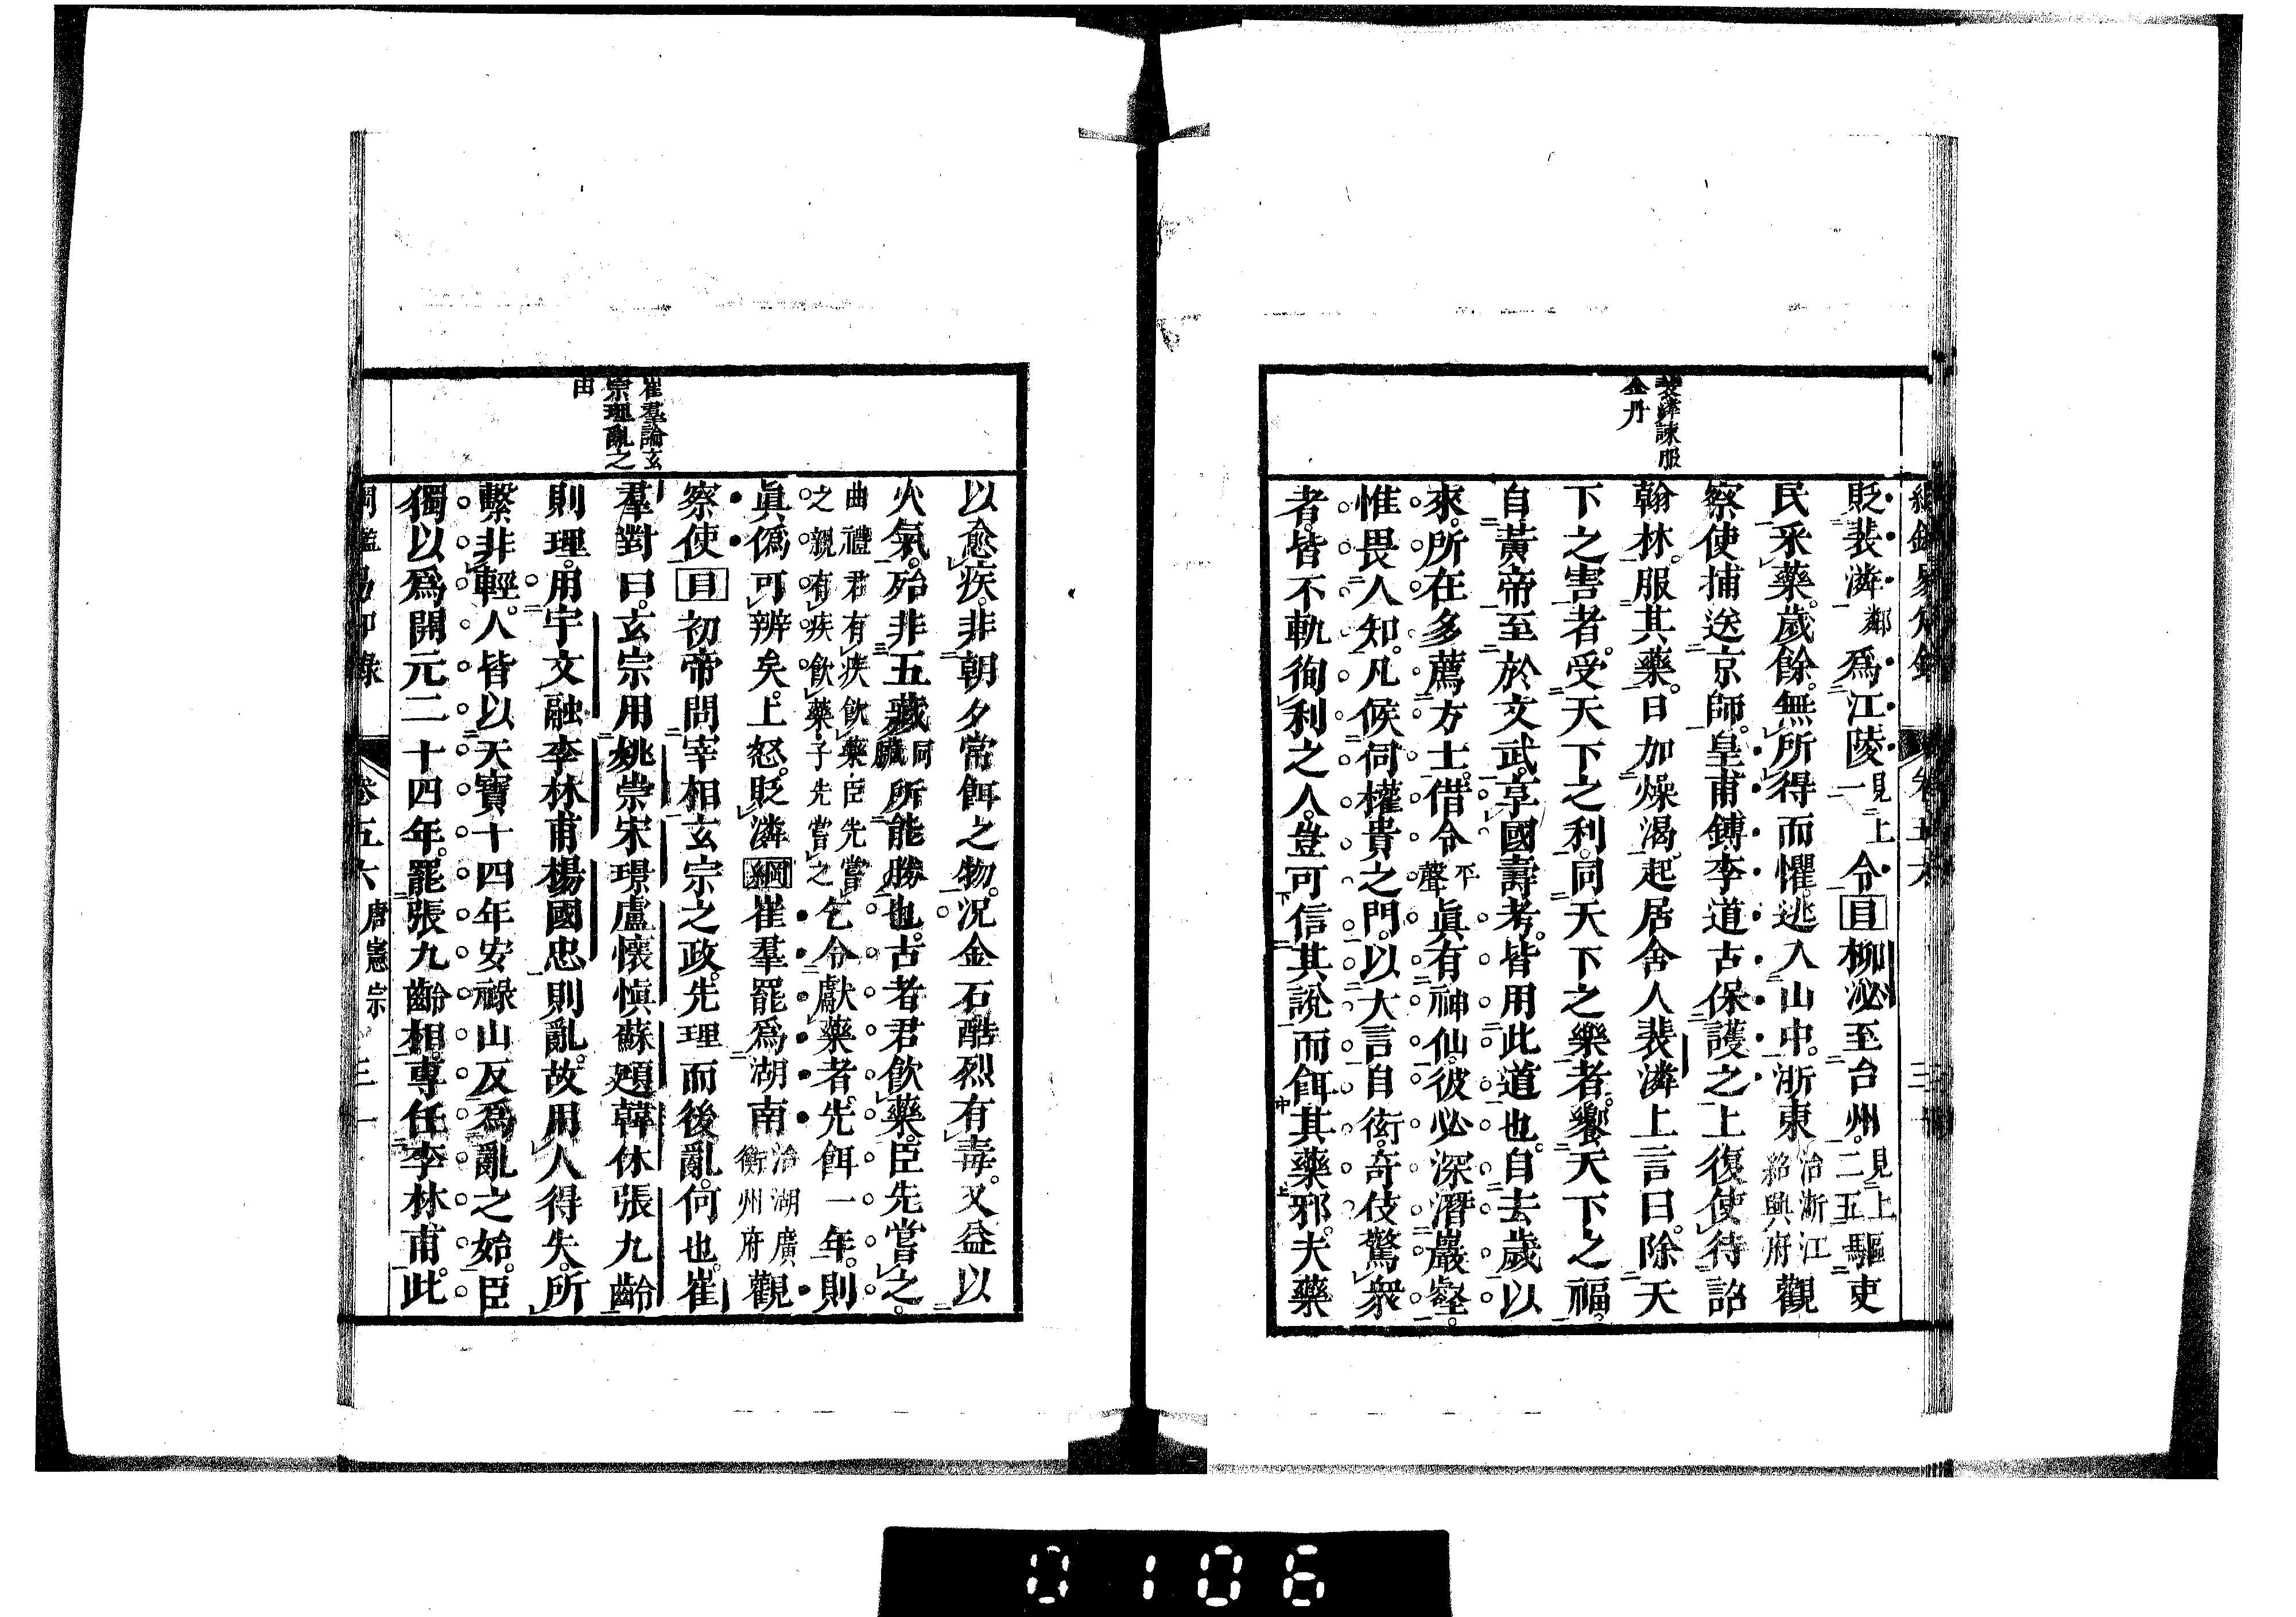 裴潾諫服
金丹
貶裴潾鄰爲江陵見上一令目柳泌至台州見上二五驅吏
民采藥。歲餘。無所得而懼。逃入山中。浙東治浙江紹興府觀
察使捕送京師。皇甫鏄李道古保護之。上復使待詔
翰林。服其藥。日加燥渴。起居舍人裴潾上言曰。除天
下之害者。受天下之利。同天下之樂者。饗天下之福。
自黃帝至於文武。享國壽考。皆用此道也。自去歲以
來。所在多薦方士。借令平聲眞有神仙。彼必深潛巖壑。
惟畏人知。凡候伺權貴之門。以大言自衒。奇伎驚衆
者。皆不軌徇利之人。豈可信其說而餌其藥邪。夫藥
以愈疾。非朝夕常餌之物。況金石酷烈有毒。又益以
火氣。殆非五藏同臟所能勝也。古者君飲藥。臣先嘗之。
曲禮君有疾飲藥臣先嘗之親有疾飲藥子先嘗之乞令獻藥者。先餌一年。則
眞僞可辨矣。上怒。貶潾綱崔羣罷爲湖南治湖廣衡州府觀
察使目初帝問宰相。玄宗之政。先理而後亂。何也。崔
羣對曰。玄宗用姚崇宋璟盧懷愼蘇頲韓休張九齡
則理。用宇文融李林甫楊國忠則亂。故用人得失。所
繫非輕。人皆以天寶十四年安祿山反爲亂之始。臣
獨以爲開元二十四年。罷張九齡相。專任李林甫。此
崔羣論玄
宗理亂之
由
綱鑑易知錄 卷五六 唐憲宗 三一